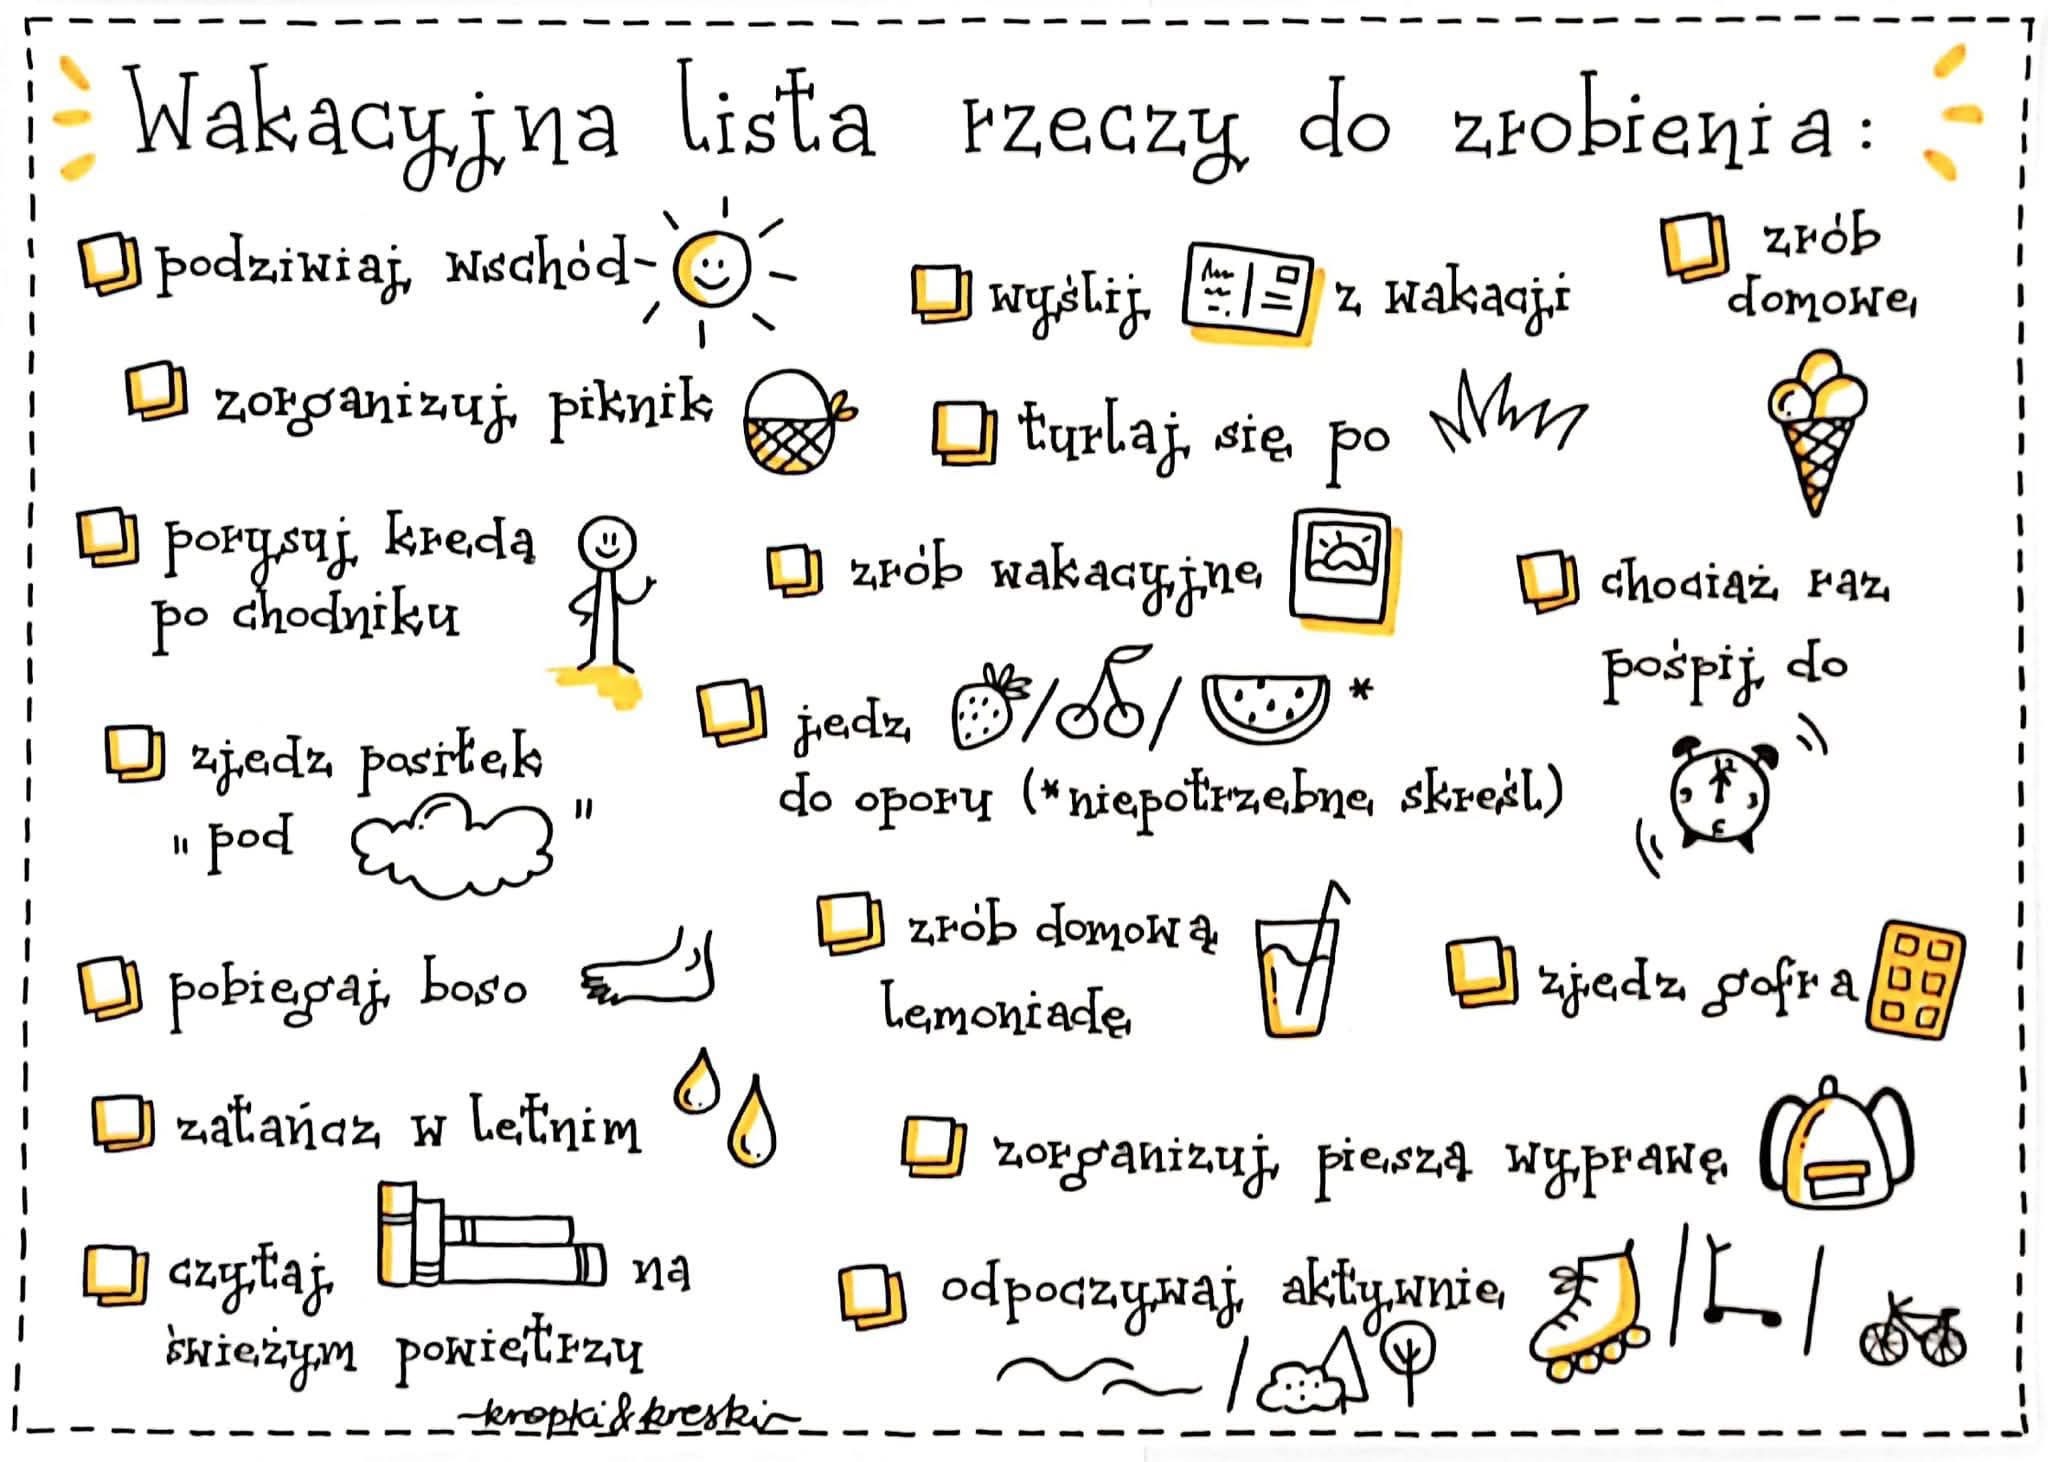 Wakacyjna lista rzeczy do zrobienia:
podziwiaj wschód-
zorganizuj piknik
porysuj kredą
po chodniku
zjedz posiłek
"pod "
pobiegaj boso
zatańcz w letnim
czytaj na
świeżym powietrzu
wyślij z wakacji
turlaj się po
zrób wakacyjne
jedz / / *
do oporu (*niepotrzebne skreśl)
zrób domową
lemoniadę
zorganizuj pieszą wyprawę
odpoczywaj aktywnie / /
/
zrób
domowe
chociaż raz
pośpij do
12
zjedz gofra
~kropki&kreski~